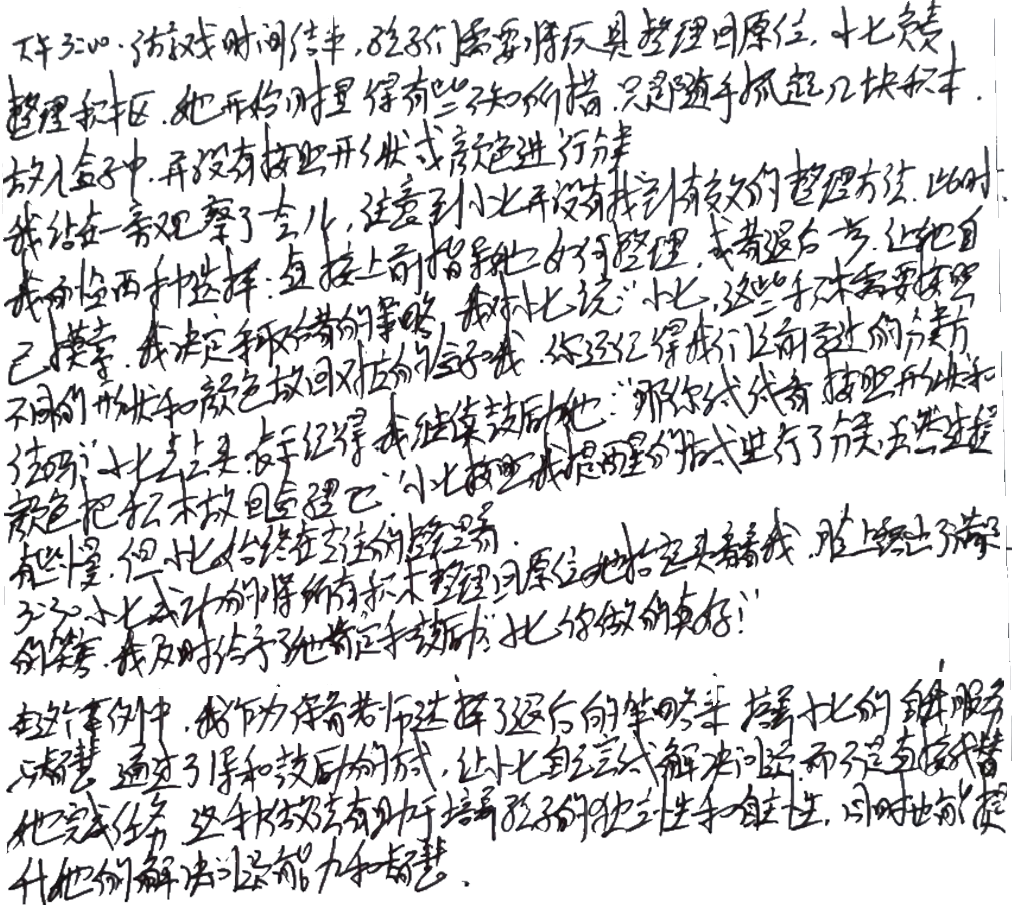 下午3:00.游戏时间结束,孩子们需要将玩具整理回原位.小七负责
整理积木区.她开始时显得有些不知所措.只是随手抓起几块积木.
放入盒子中.并没有按照形状或颜色进行分类
我站在一旁观察了一会儿,注意到小七并没有找到有效的整理方法.此时.
我面临两种选择:直接上前指导她如何整理.或者退后一步.让她自
己摸索.我决定采取后者的策略,我对小七说:"小七,这些积木需要按照
不同的形状和颜色放回对应的盒子哦.你还记得我们之前学过的分类方
法吗?"小七点点头.表示记得.我继续鼓励她:"那你试试看按照形状和
颜色把积木放回盒里吧."小七按照我提醒的方式进行了分类.虽然过程
有些慢.但小七始终在专注的整理着.
3:30小七成功的将所有积木整理回原位她抬起头看着我.脸上露出了满足
的笑容.我及时给予了她肯定和鼓励:"小七你做的真好!"
在这个案例中,我作为保育老师选择了退后的策略来培养小七的自我服务
与智慧 通过引导和鼓励的方式,让小七自己尝试解决问题.而不是直接代替
她完成任务 这种做法有助于培养孩子的独立性和自主性,同时也能提
升他们解决问题能力和智慧.